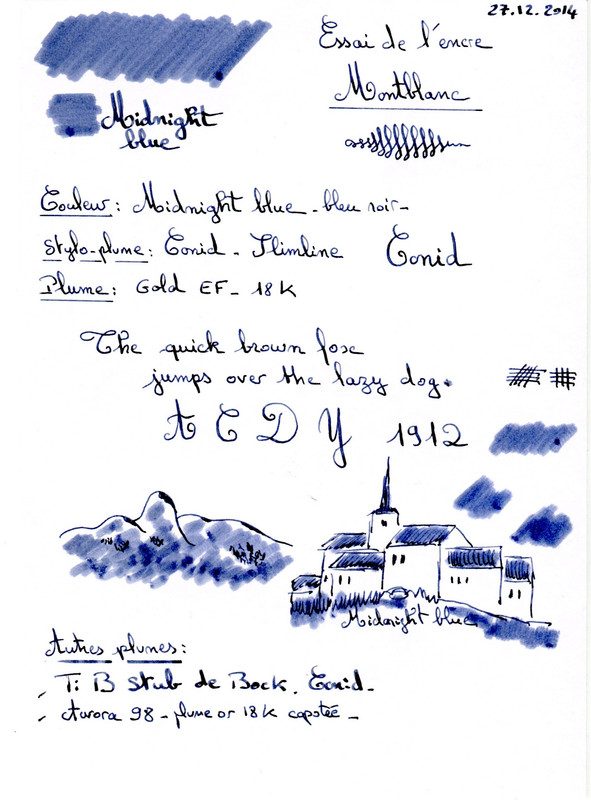 27.12.2014
Essai de l'encre
Montblanc
Midnight
blue
Couleur: Midnight blue - bleu noir -
Stylo-plume: Conid - Slimline Conid
Plume: Gold EF - 18 K
The quick brown fox
jumps over the lazy dog.
A C D Y 1912
Midnight blue
Autres plumes:
- Ti B stub de Bock. Conid -
- Aurora 98 - plume or 18 K capotée -